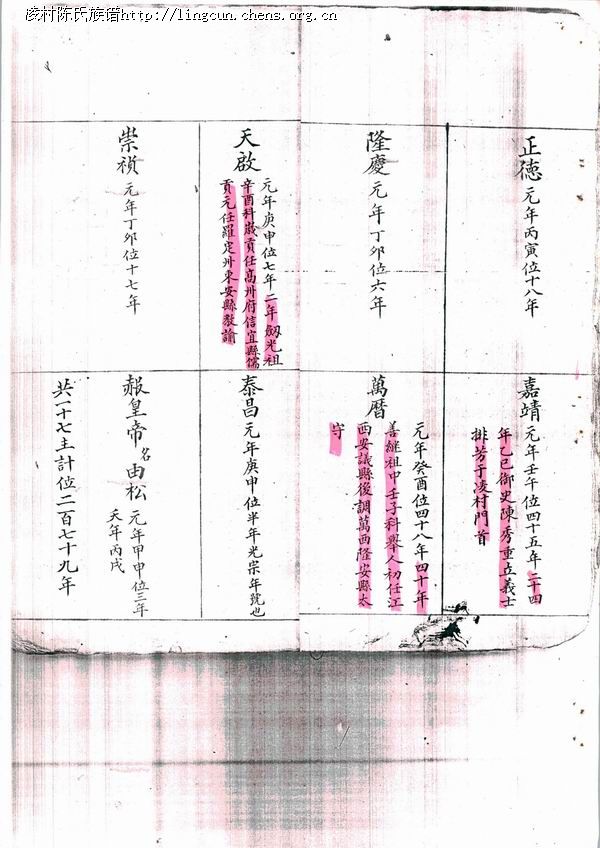 凌村陈氏族谱http://lingcun.chens.org.cn
正德 元年丙寅位十八年
嘉靖 元年壬午位四十五年二十四
年乙巳御史陳秀重立義士
排芳于凌村門首
隆慶 元年丁卯位六年
萬曆 元年癸酉位四十八年四十年
善繼祖中壬子科舉人初任江
西安議縣後調萬西隆安縣太
守
天啟 元年庚申位七年二年劔光祖
辛酉科歲貢任高卅府信宜縣儒
貢元任羅定卅東安縣教諭
泰昌 元年庚申位半年光宗年號也
崇禎 元年丁卯位十七年
赧皇帝 名由松 元年甲申位三年
天年丙戌
共一十七主計位二百七十九年